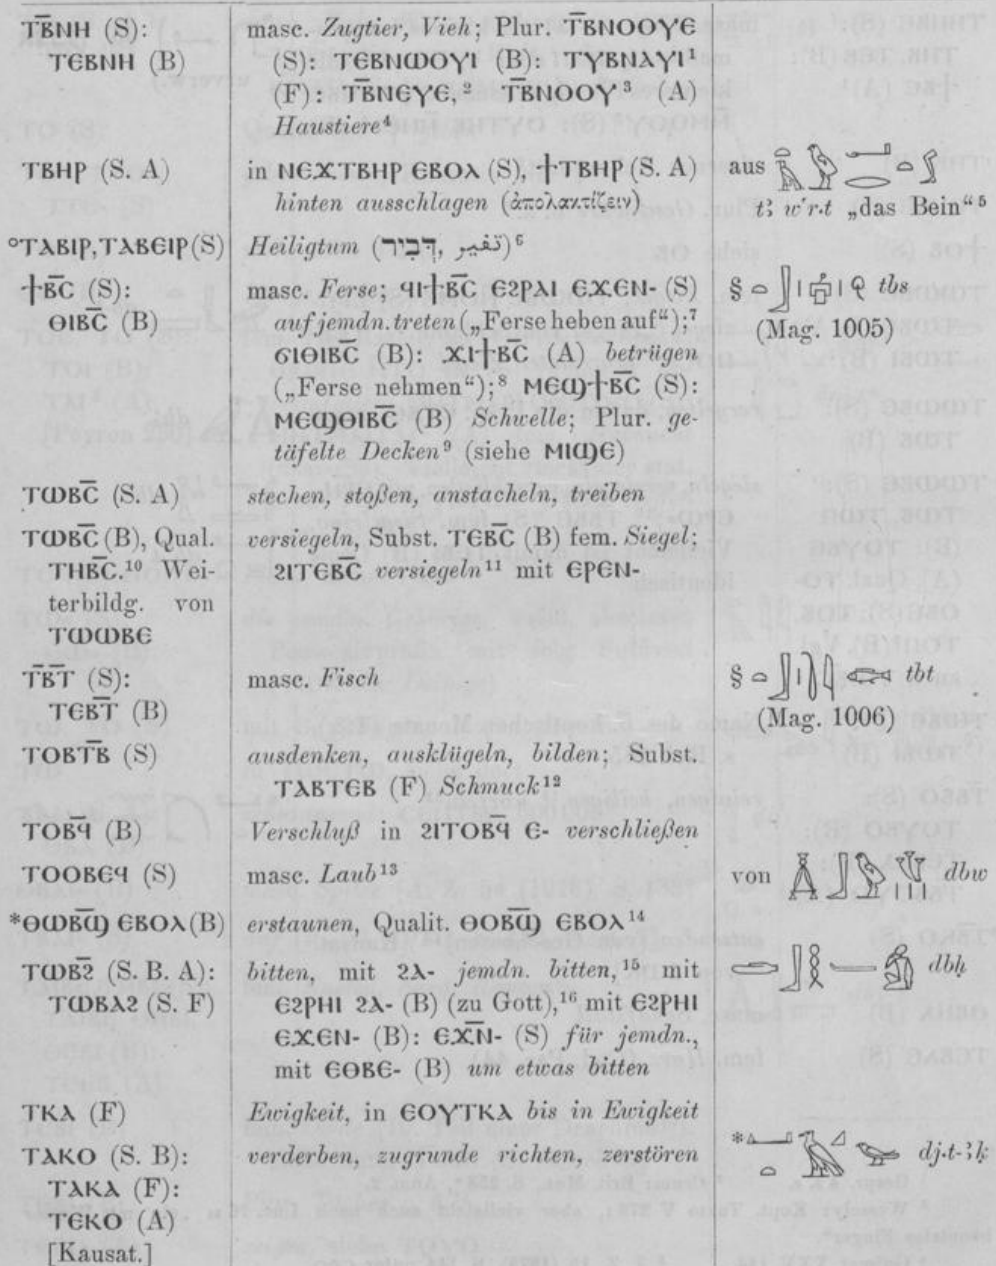 ⲦⲂ̅ⲚⲎ (S): masc. Zugtier, Vieh; Plur. ⲦⲂ̅ⲚⲞⲞⲨⲈ
ⲦⲈⲂⲚⲎ (B) (S): ⲦⲈⲂⲚⲰⲞⲨⲒ (B): ⲦⲨⲂⲚⲀⲨⲒ¹
(F): ⲦⲂ̅ⲚⲈⲨⲈ,² ⲦⲂ̅ⲚⲞⲞⲨ³ (A)
Haustiere⁴
ⲦⲂⲎⲢ (S. A) in ⲚⲈϪⲦⲂⲎⲢ ⲈⲂⲞⲖ (S), ϮⲦⲂⲎⲢ (S. A) aus
hinten ausschlagen (ἀπολακτίζειν) tꜣ wʿr·t „das Bein“⁵
°ⲦⲀⲂⲒⲢ, ⲦⲀⲂⲈⲒⲢ (S) Heiligtum (דְּבִיר,)⁶
ϮⲂ̅Ⲥ (S): masc. Ferse; ϤⲒϮⲂ̅Ⲥ ⲈϨⲢⲀⲒ ⲈϪⲈⲚ- (S) § tbs
ⲐⲒⲂ̅Ⲥ (B) auf jemdn. treten („Ferse heben auf“);⁷ (Mag. 1005)
ϬⲒⲐⲒⲂ̅Ⲥ (B): ϪⲒϮⲂ̅Ⲥ (A) betrügen
(„Ferse nehmen“);⁸ ⲘⲈϢϮⲂ̅Ⲥ (S):
ⲘⲈϢⲐⲒⲂ̅Ⲥ (B) Schwelle; Plur. ge-
täfelte Decken⁹ (siehe ⲘⲒϢⲈ)
ⲦⲰⲂ̅Ⲥ (S. A) stechen, stoßen, anstacheln, treiben
ⲦⲰⲂ̅Ⲥ (B), Qual. versiegeln, Subst. ⲦⲈⲂ̅Ⲥ (B) fem. Siegel;
ⲦⲎⲂ̅Ⲥ.¹⁰ Wei- ϨⲒⲦⲈⲂ̅Ⲥ versiegeln¹¹ mit ⲈⲢⲈⲚ-
terbildg. von
ⲦⲰⲰⲂⲈ
ⲦⲂ̅Ⲧ (S): masc. Fisch § tbt
ⲦⲈⲂ̅Ⲧ (B) (Mag. 1006)
ⲦⲞⲂⲦⲂ̅ (S) ausdenken, ausklügeln, bilden; Subst.
ⲦⲀⲂⲦⲈⲂ (F) Schmuck¹²
ⲦⲞⲂ̅Ϥ (B) Verschluß in ϨⲒⲦⲞⲂ̅Ϥ Ⲉ- verschließen
ⲦⲞⲞⲂⲈϤ (S) masc. Laub¹³ von dbw
*ⲐⲰⲂ̅Ϣ ⲈⲂⲞⲖ (B) erstaunen, Qualit. ⲐⲞⲂ̅Ϣ ⲈⲂⲞⲖ¹⁴
ⲦⲰⲂ̅Ϩ (S. B. A): bitten, mit ϨⲀ- jemdn. bitten,¹⁵ mit dbḥ
ⲦⲰⲂⲀϨ (S. F) ⲈϨⲢⲎⲒ ϨⲀ- (B) (zu Gott),¹⁶ mit ⲈϨⲢⲎⲒ
ⲈϪⲈⲚ- (B): ⲈϪⲚ̅- (S) für jemdn.,
mit ⲈⲐⲂⲈ- (B) um etwas bitten
ⲦⲔⲀ (F) Ewigkeit, in ⲈⲞⲨⲦⲔⲀ bis in Ewigkeit
ⲦⲀⲔⲞ (S. B): verderben, zugrunde richten, zerstören * dj·t-ꜣḳ
ⲦⲀⲔⲀ (F):
ⲦⲈⲔⲞ (A)
[Kausat.]